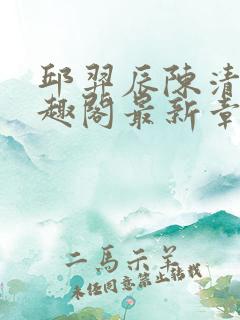 邱羿辰陳清
趣閣最新章
二馬示羊
未经同意禁止转载